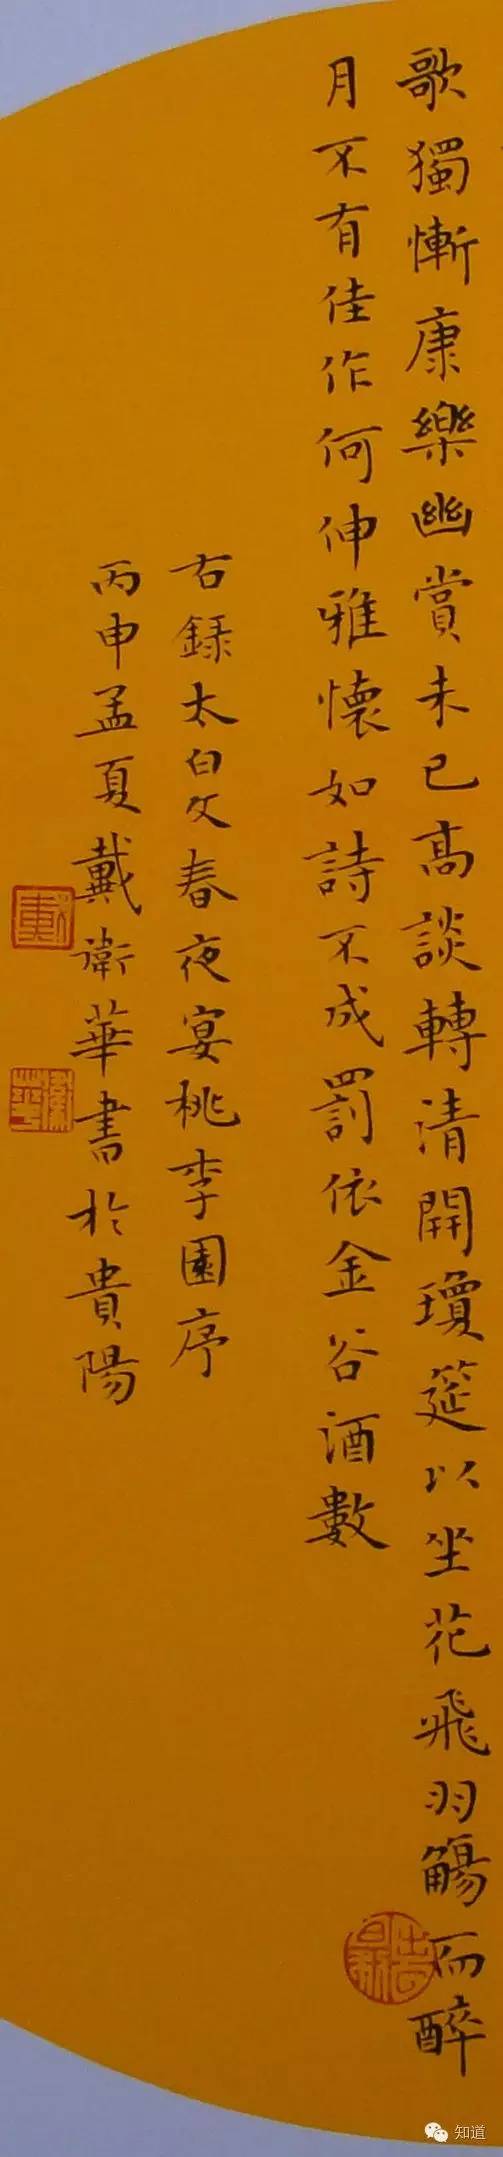 歌獨慚康樂幽賞未已高談轉清開瓊筵以坐花飛羽觴而醉
月不有佳作何伸雅懷如詩不成罰依金谷酒數
右録太白文春夜宴桃李園序
丙申孟夏戴衛華書於貴陽
知道